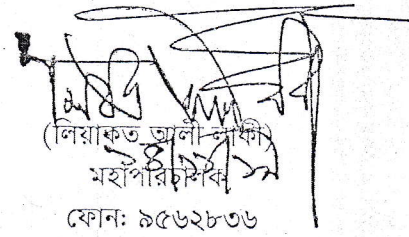 (লিয়াকত আলী লাকী)
মহাপরিচালক
ফোন: ৯৫৬২৮৩৬